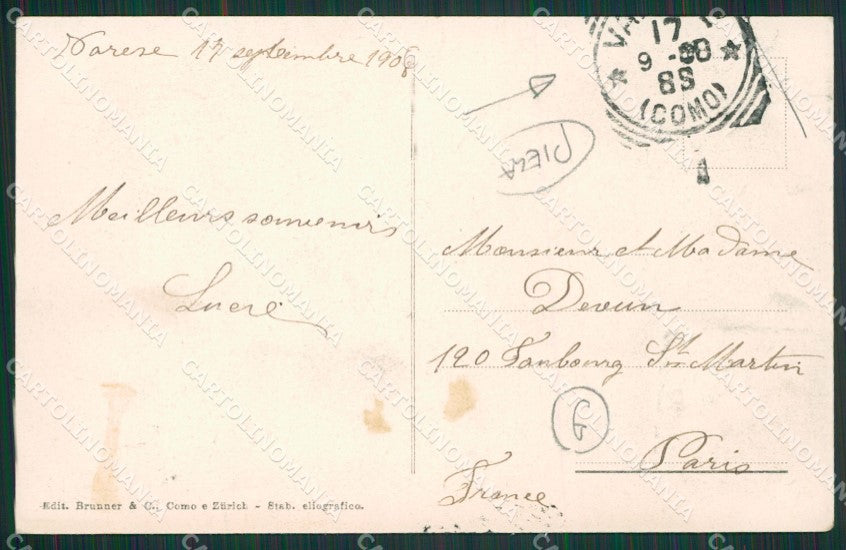 Varese 17 septembre 1908
Meilleurs souvenirs
VA
17
9 - 08
8S
(COMO)
Monsieur et Madame
Devun
120 Faubourg St Martin
Paris
France
G
Edit. Brunner & C., Como e Zürich - Stab. eliografico.
CARTOLINOMANIA